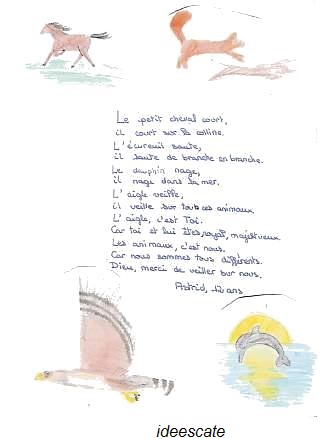 Le petit cheval court,
il court sur la colline.
L'écureuil saute,
il saute de branche en branche.
Le dauphin nage,
il nage dans la mer.
L'aigle veille,
il veille sur tous ces animaux.
L'aigle, c'est Toi.
Car toi et lui êtes royal, majestueux
Les animaux, c'est nous.
Car nous sommes tous différents.
Dieu, merci de veiller sur nous.
Astrid, 12 ans
ideescate